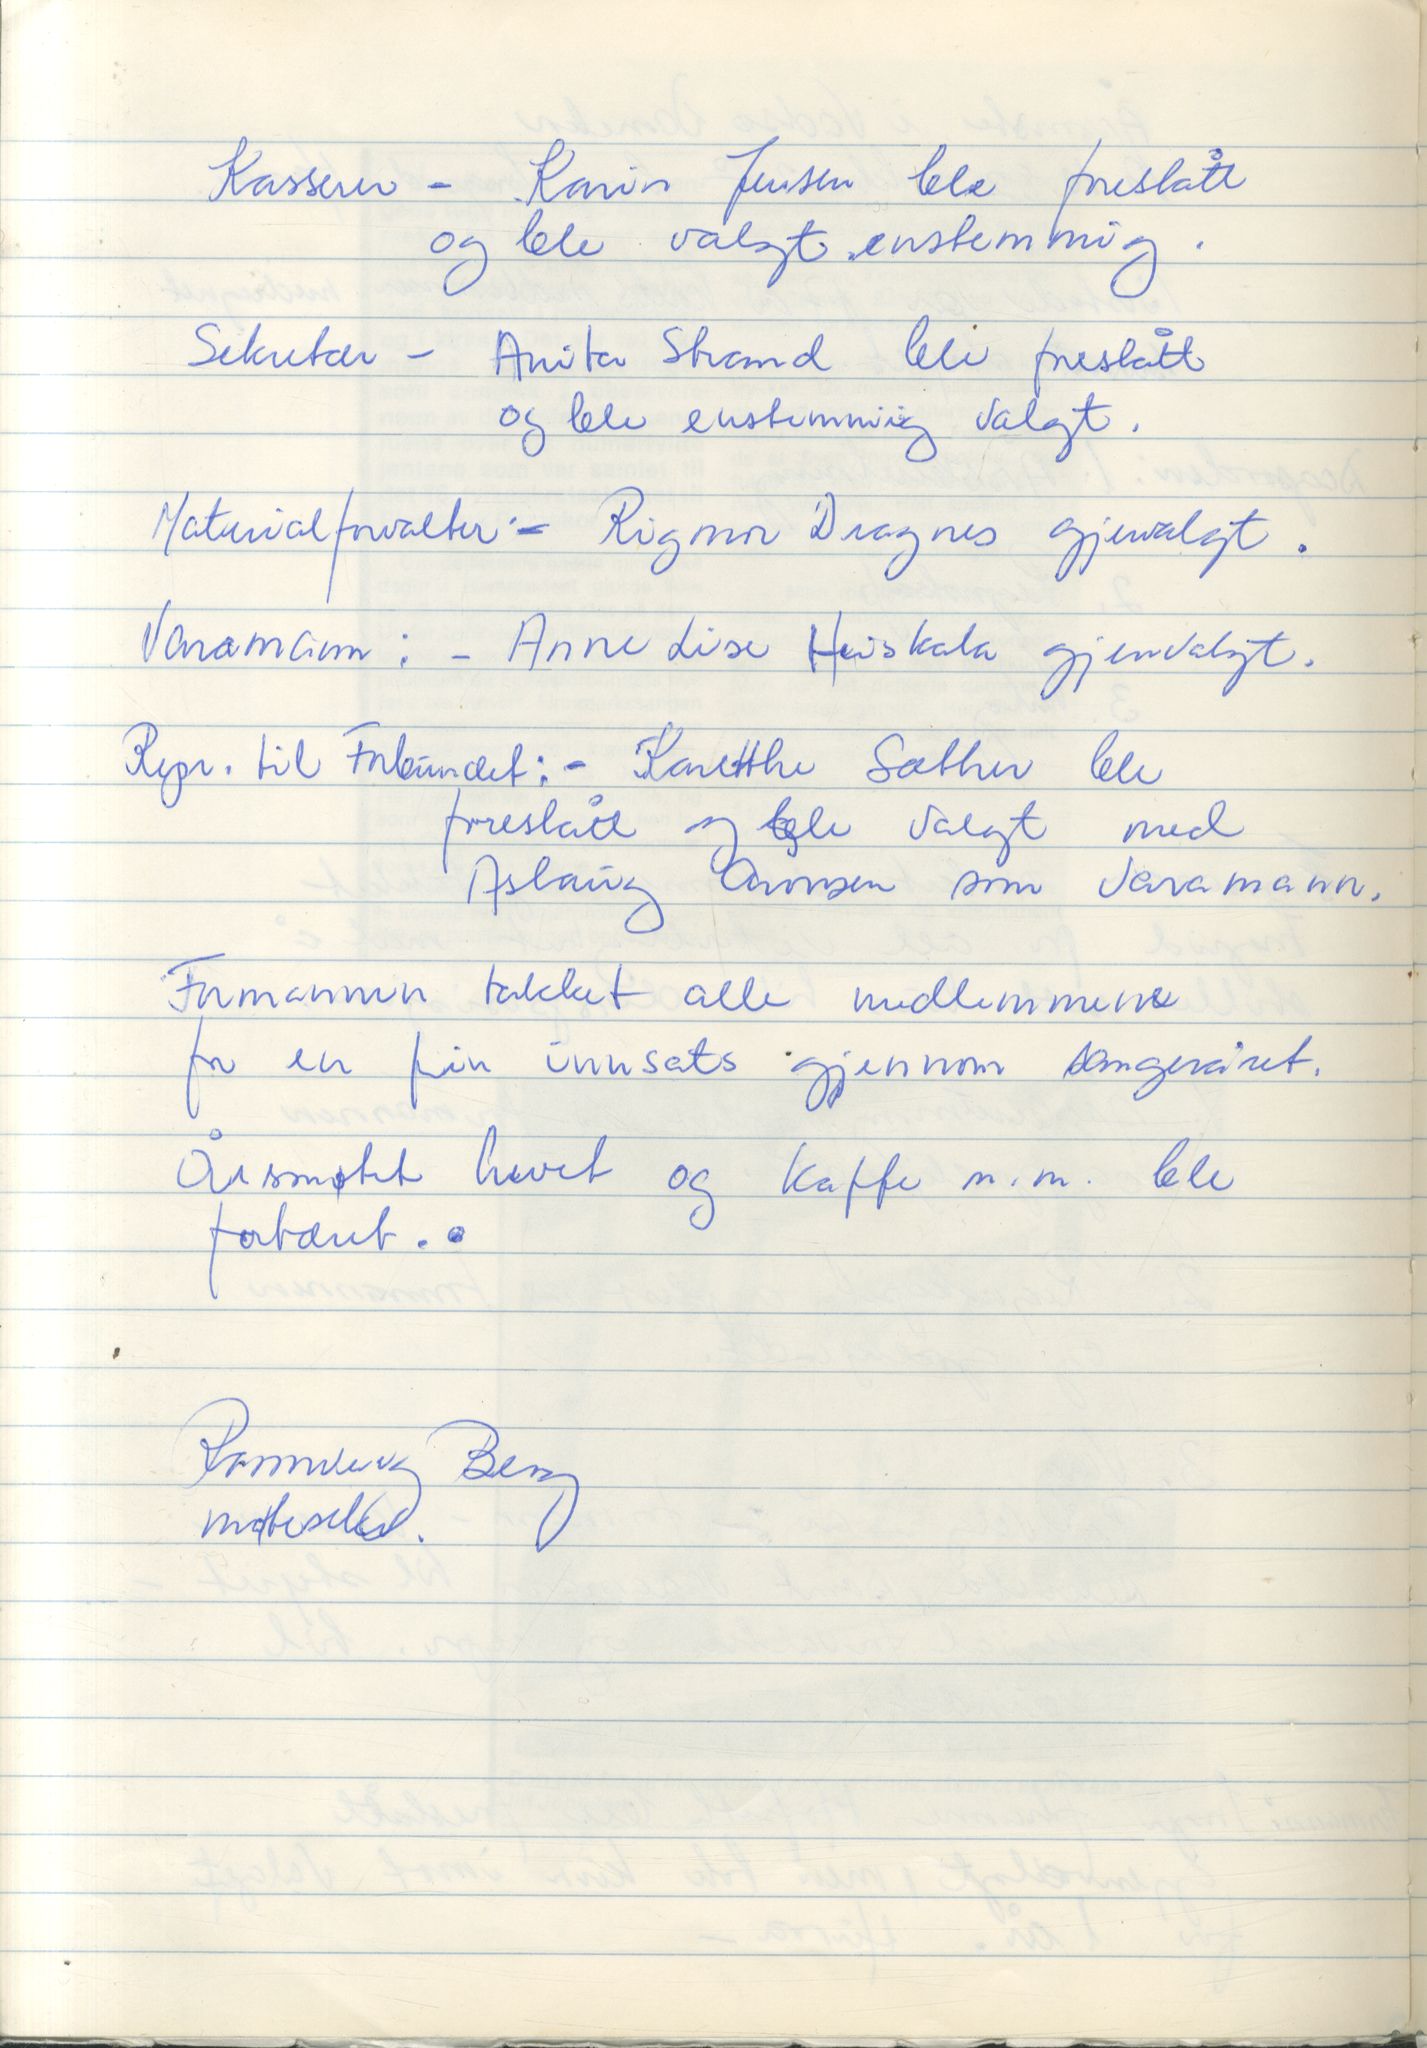 Kasserer - Karin Jensen ble foreslått
og ble valgt enstemmig.
Sekretær - Anita Strand ble foreslått
og ble enstemmig valgt.
Materialforvalter - Rigmor Dragnes gjenvalgt.
Varamann: - Anne Lise Heiskala gjenvalgt.
Repr. til Forbundet: - Karethe Sæther ble
foreslått og ble valgt med
Aslaug som varamann.
Formannen takket alle medlemmene
for en fin innsats gjennom sangeråret.
Årsmøtet hevet og kaffe m.m. ble
fortæret.
Rannveig Berg
møtesekr.